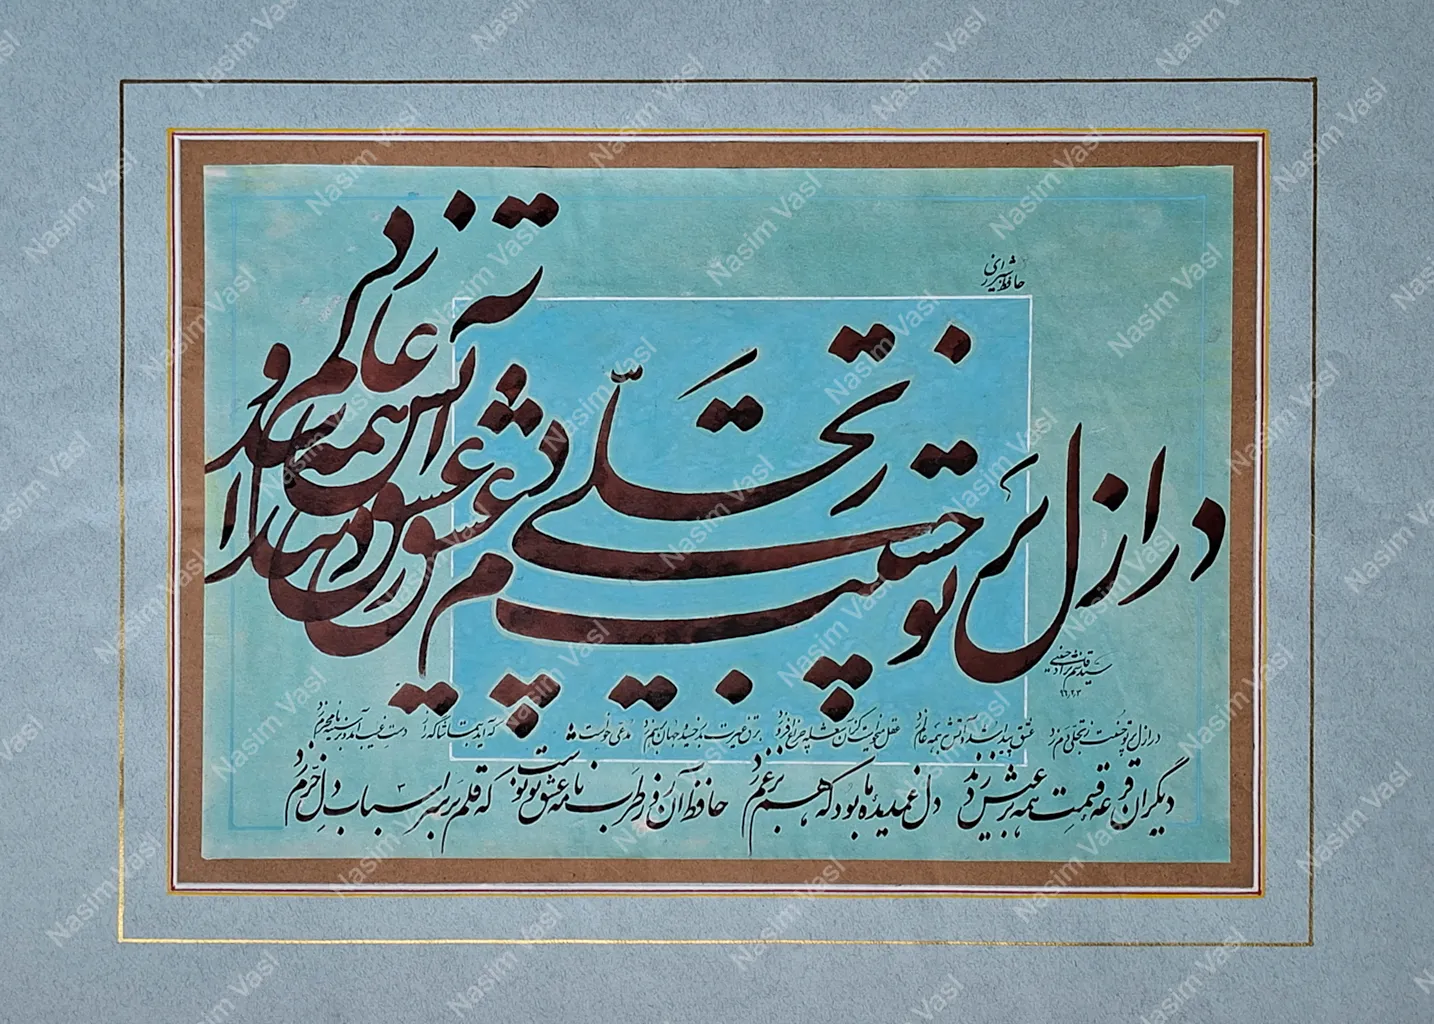 حافظ شیرازی
در ازل پرتو حسنت ز تجلّی دم زد
عشق پیدا شد و آتش به همه عالم زد
۹۶،۲،۳
در ازل پرتو حسنت ز تجلی دم زد عشق پیدا شد و آتش به همه عالم زد عقل میخواست کز آن شعله چراغ افروزد برق غیرت بدرخشید و جهان بر هم زد مدعی خواست که آید به تماشاگه راز دست غیب آمد و بر سینه نامحرم زد
دیگران قرعه قسمت همه بر عیش زدند دل غمدیده ما بود که هم بر غم زد حافظ آن روز طربنامه عشق تو نوشت که قلم بر سر اسباب دل خرّم زد
Nasim Vasl